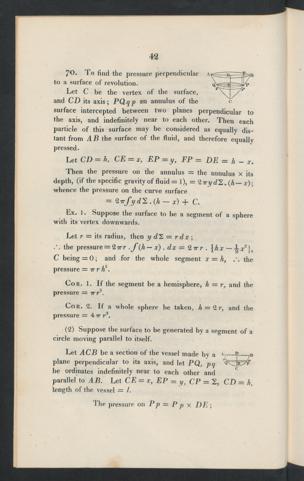 42
70. To find the pressure perpendicular
to a surface of revolution.
Let C be the vertex of the surface,
and CD its axis; PQqp an annulus of the
surface intercepted between two planes perpendicular to
the axis, and indefinitely near to each other. Then each
particle of this surface may be considered as equally dis-
tant from AB the surface of the fluid, and therefore equally
pressed.
Let CD = h, CE = x, EP = y, FP = DE = h − x.
Then the pressure on the annulus = the annulus × its
depth, (if the specific gravity of fluid = 1), = 2πy dΣ.(h − x);
whence the pressure on the curve surface
= 2π∫y dΣ.(h − x) + C.
Ex. 1. Suppose the surface to be a segment of a sphere
with its vertex downwards.
Let r = its radius, then y dΣ = r dx;
∴ the pressure = 2πr.∫(h − x).dx = 2πr.{hx − ½x²},
C being = 0; and for the whole segment x = h, ∴ the
pressure = πrh².
Cor. 1. If the segment be a hemisphere, h = r, and the
pressure = πr³.
Cor. 2. If a whole sphere be taken, h = 2r, and the
pressure = 4πr³.
(2) Suppose the surface to be generated by a segment of a
circle moving parallel to itself.
Let ACB be a section of the vessel made by a
plane perpendicular to its axis, and let PQ, pq
be ordinates indefinitely near to each other and
parallel to AB. Let CE = x, EP = y, CP = Σ, CD = h,
length of the vessel = l.
The pressure on Pp = Pp × DE;